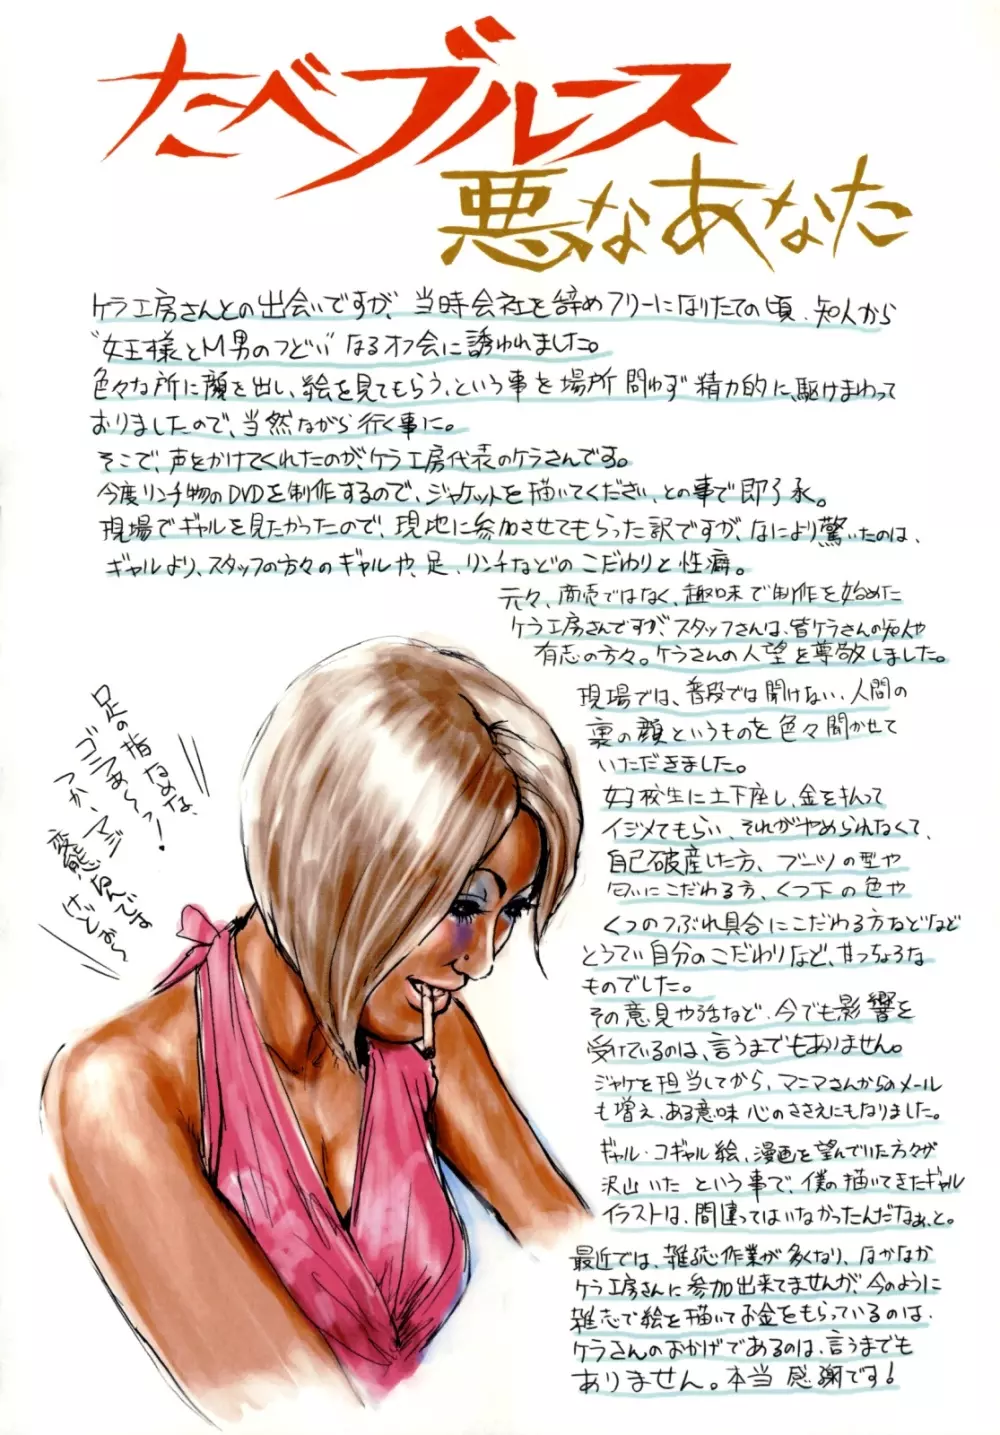 たべブルース
悪なあなた
ケラ工房さんとの出会いですが、当時会社を辞めフリーになりたての頃、知人から
"女王様とM男のつどい"なるオフ会に誘われました。
色々な所に顔を出し、絵を見てもらう、という事を場所問わず精力的に、駆けまわって
おりましたので、当然ながら行く事に。
そこで、声をかけてくれたのが、ケラ工房代表のケラさんです。
今度リンチ物のDVDを制作するので、ジャケットを描いてください、との事で即了承。
現場でギャルを見たかったので、現地に参加させてもらった訳ですが、なにより驚いたのは、
ギャルより、スタッフの方々のギャルや、足、リンチなどのこだわりと性癖。
元々、商売ではなく、趣味で制作を始めた
ケラ工房さんですが、スタッフさんは、皆ケラさんの知人や
有志の方々。ケラさんの人望を尊敬しました。
現場では、普段では聞けない、人間の
裏の顔というものを色々聞かせて
いただきました。
女子校生に土下座し、金を払って
イジメてもらい、それがやめられなくて、
自己破産した方、ブーツの型や
匂いにこだわる方、くつ下の色や
くつのつぶれ具合にこだわる方などなど
とうてい自分のこだわりなど、甘っちょろな
ものでした。
その意見や話など、今でも影響を
受けているのは、言うまでもありません。
ジャケを担当してから、マニアさんからのメール
も増え、ある意味心のささえにもなりました。
ギャル・コギャル絵、漫画を望んでいた方々が
沢山いたという事で、僕の描いてきたギャル
イラストは、間違ってはいなかったんだなぁ、と。
最近では、雑誌作業が多くなり、なかなか
ケラ工房さんに参加出来てませんが、今のように
雑志で絵を描いてお金をもらっているのは、
ケラさんのおかげであるのは、言うまでも
ありません。本当感謝です！
足の指なめな、
ゴラァあ〜っ！
つか、マジ
変態